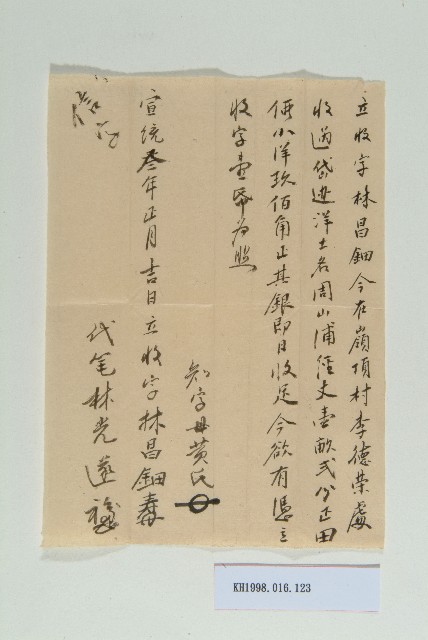 立收字林昌鈿今在嶺頂村李德榮處
收過岱边洋土名周山浦徑丈壹畝弍分正田
価小洋玖佰角正其銀即日收足今欲有憑立
收字壹帋為照
知字母黃氏
宣統叁年正月吉日立收字林昌鈿
代笔林光
KH1998.016.123